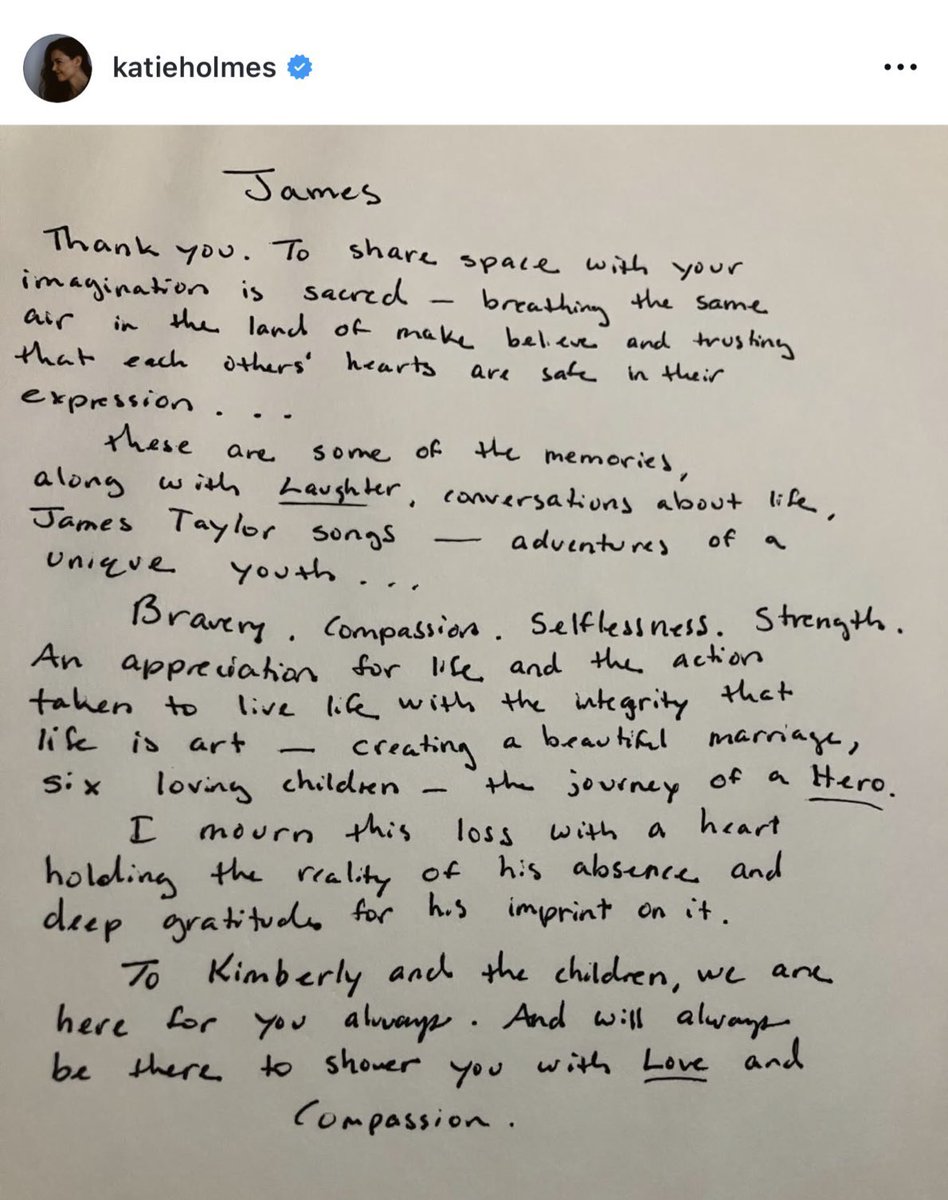 katieholmes
James
Thank you. To share space with your
imagination is sacred – breathing the same
air in the land of make believe and trusting
that each others' hearts are safe in their
expression . . .
these are some of the memories,
along with Laughter, conversations about life,
James Taylor songs — adventures of a
unique youth . . .
Bravery. Compassion. Selflessness. Strength.
An appreciation for life and the action
taken to live life with the integrity that
life is art — creating a beautiful marriage,
six loving children – the journey of a Hero.
I mourn this loss with a heart
holding the reality of his absence and
deep gratitude for his imprint on it.
To Kimberly and the children, we are
here for you always. And will always
be there to shower you with Love and
Compassion.